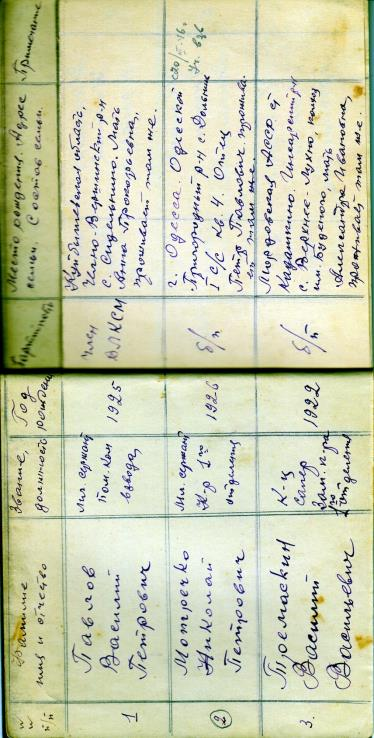 №№ п/п
Фамилие
имя и отчество
Звание,
должность
Год
рождения
Партийность
Место рождения. Адрес
семьи. Состав семьи.
Примечание
1
Павлов
Василий
Петрович
Мл. сержант
Пом. Ком
взвода
1925
Член
ВЛКСМ
Куйбышевская область,
Челно-Вершинский р-н
с. Сиделькино. Мать
Анна Прокофьевна,
проживает там же.
2
Николай
Петрович
Мл. сержант
К-р 1го
отделения
1926
б/п
г. Одесса. Одесской
Пригородный р-н с. Дольник
I с/с кв. 4. Отец
Петр Павлович прожива-
ет там же.
3.
Тремаскин
Василий
Васильевич
К-ц
Сапер
Зам. к-ра
1го отделения
1922
б/п
Мордовская АССР
Кадашкино
с. Верхнее Лухно, колхоз
им. Буденого, мать
Александра Ивановна,
проживает там же.